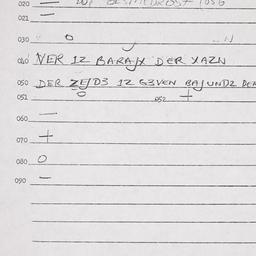 020 —
021 —
030 o
040 VER 12 BARAJX DER XAZN
050 DER ZEJD3 12 G3VEN BAJUNDZ DER
051 o 052 +
060 —
070 +
080 o
090 —